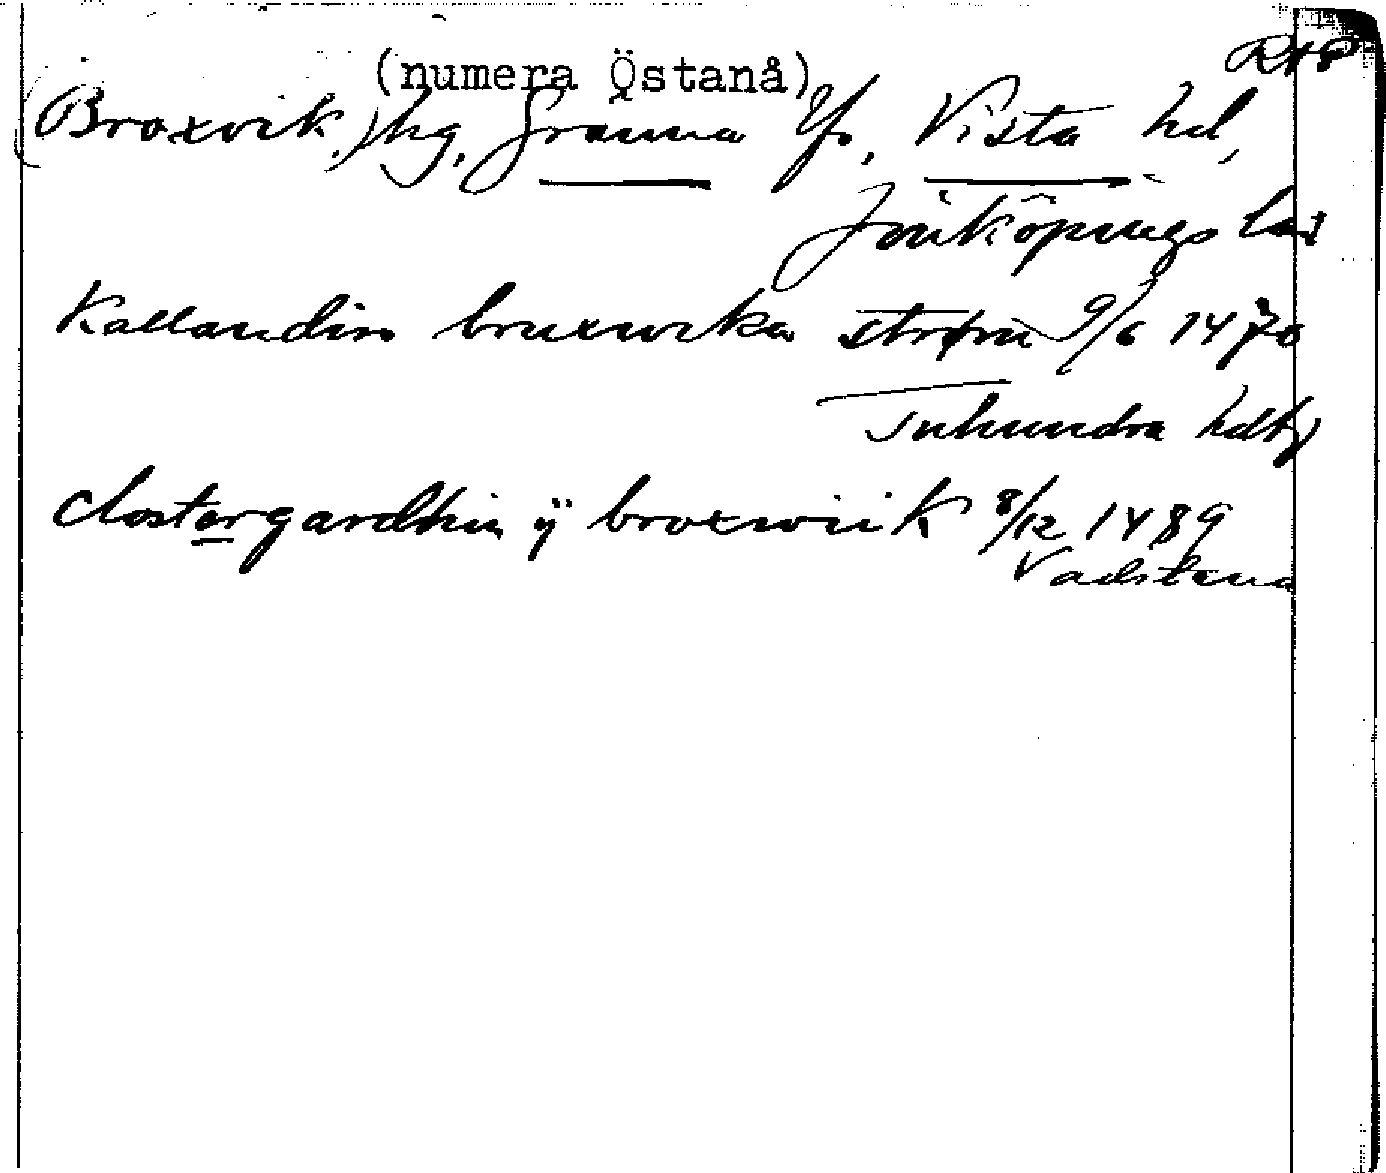 RAP
(numera Östanå)
(Broxvik,) hg, Gränna lfs, Vista hd,
Jönköpings län
Kallandin bruxwika strøm 9/6 1470
Tuhundra hdtg
clostergardhin ÿ broxwiik 8/12 1489
Vadstena